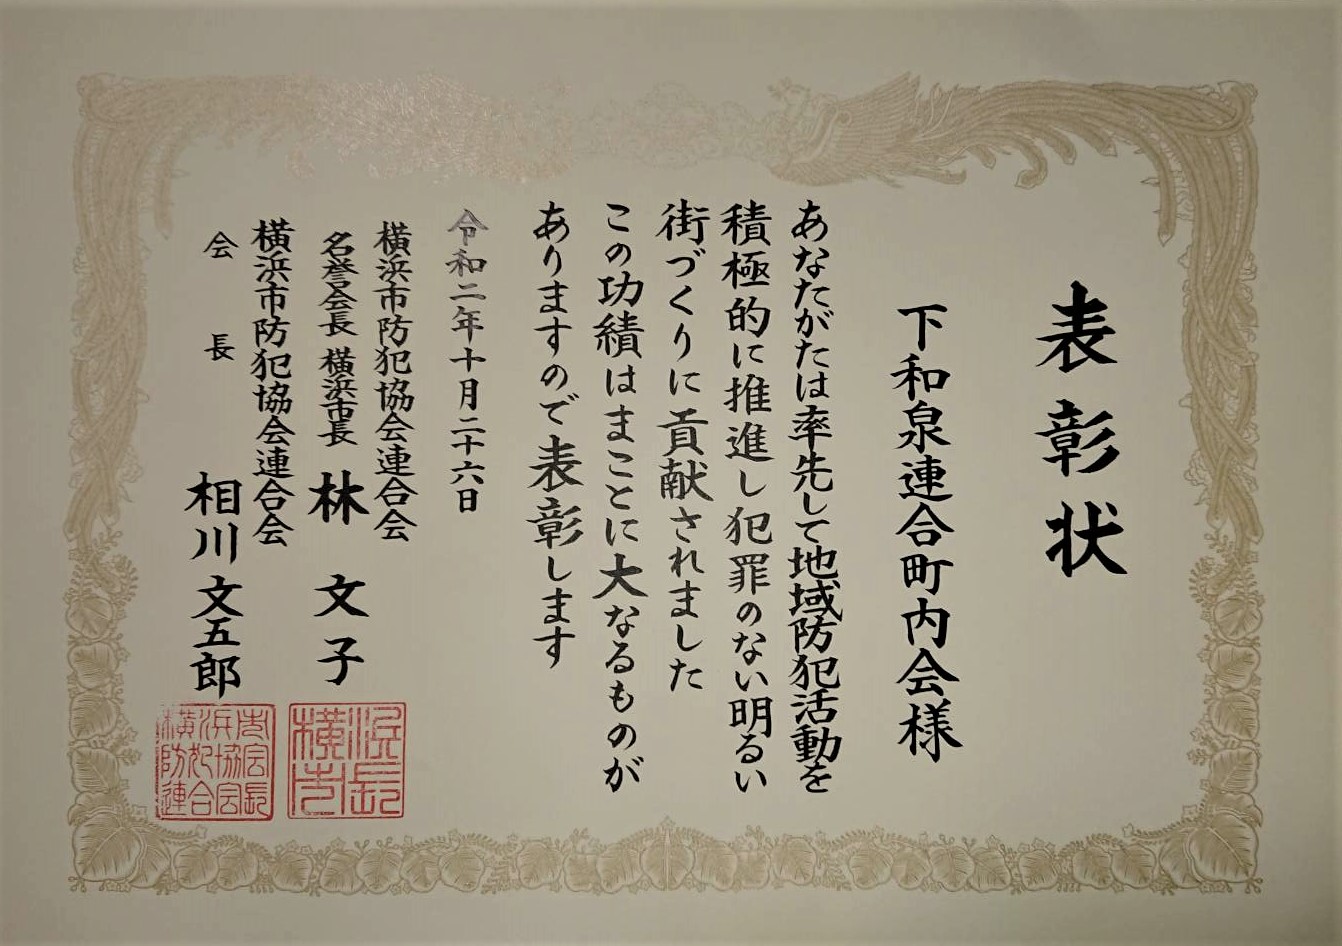 表彰状
下和泉連合町内会様
あなたがたは率先して地域防犯活動を
積極的に推進し犯罪のない明るい
街づくりに貢献されました
この功績はまことに大なるものが
ありますので表彰します
令和二年十月二十六日
横浜市防犯協会連合会
名誉会長 横浜市長 林 文子
横浜市防犯協会連合会
会 長 相川 文五郎